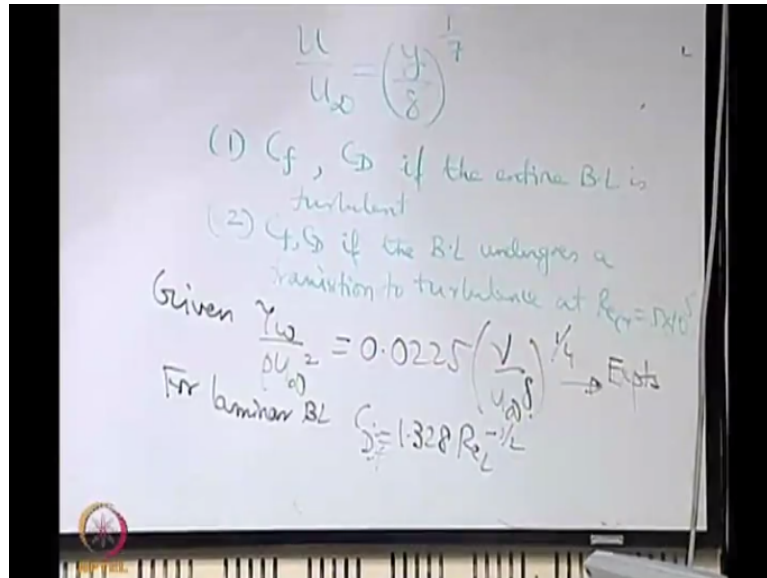 u/u∞ = (y/δ)^1/7
(1) Cf, CD if the entire B.L is
turbulent
(2) Cf, CD if the B.L undergoes a
transition to turbulence at Re,cr = 5x10^5
Given τw/ρu∞^2 = 0.0225 (ν/u∞δ)^1/4 → Expts
For laminar BL CD = 1.328 ReL^-1/2
NPTEL